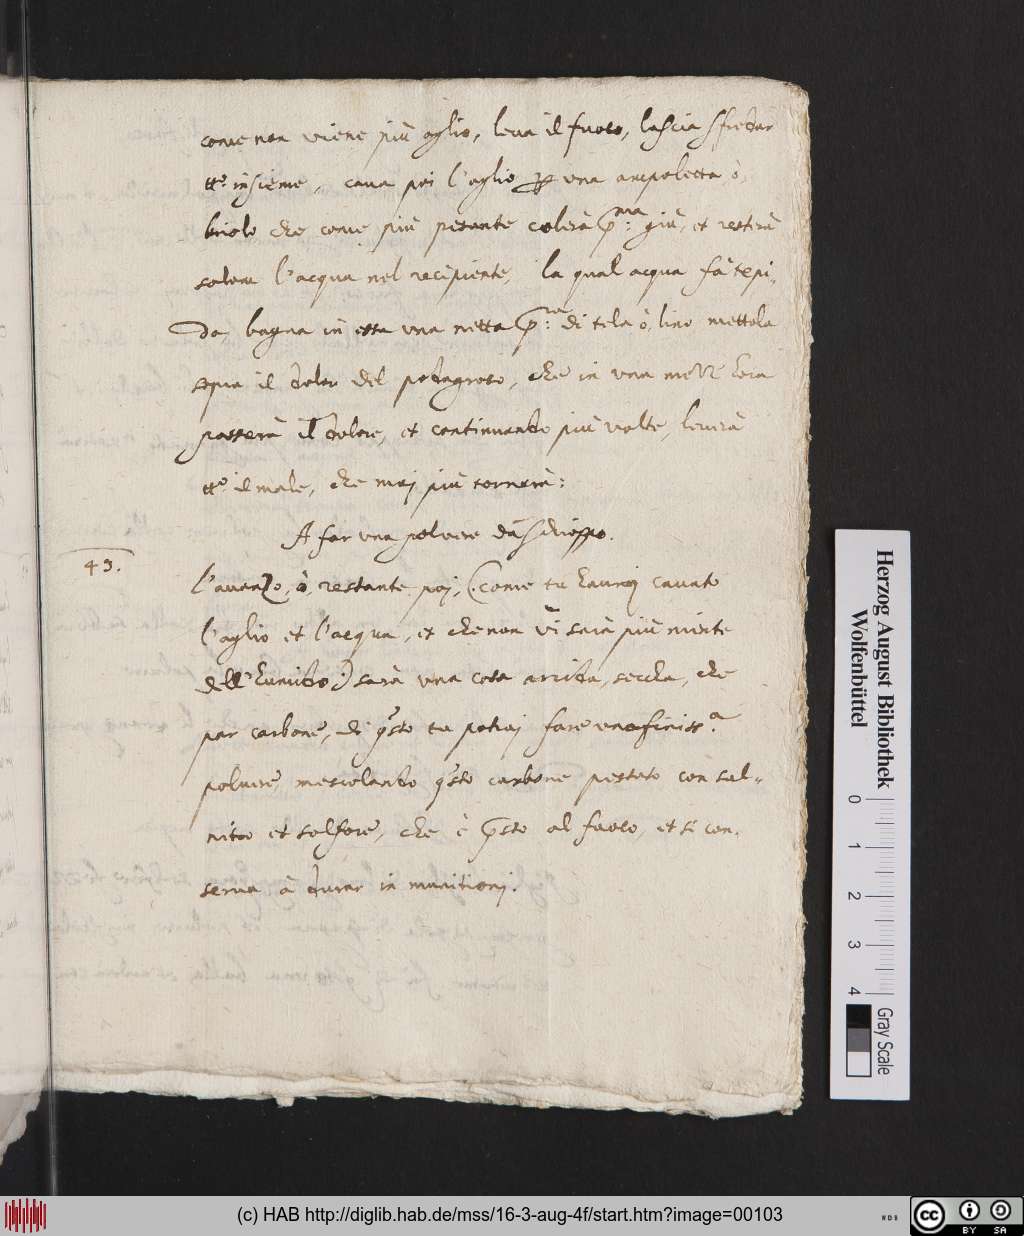 come non viene più oglio, leua il fuoco, lascia sfredar
tt.º insieme, caua poi l'oglio per una ampoletta ò,
briolo che come più pesante colerà p.ma: giù, et resterà
solam l'acqua nel recipiente, la qual acqua fà tepi,
da bagna in essa una netta p.za: di tela ò, lino mettela
sopra il dolor del podagroso, che in una mezz hora
passerà il dolore, et continuando più volte, leuerà
tt.º il male, che maj più tornerà:
A far una poluere da schioppo.
43.
l'auanzo, ò, restante poj, (come tu hauraj cauato
l'oglio et l'acqua, et che non vi sarà più niente
dell'humido:) sarà una cosa arrida, seccha, che
par carbone, di q.sto tu potraj fare una finiss.a
poluere, mescolando q.sto carbone pestato con sal,,
nitro et solfore, che è p.sto al fuoco, et si con,
serua à durar in munitionj.
Herzog August Bibliothek
Wolfenbüttel
0 1 2 3 4
Gray Scale
(c) HAB http://diglib.hab.de/mss/16-3-aug-4f/start.htm?image=00103
cc BY SA